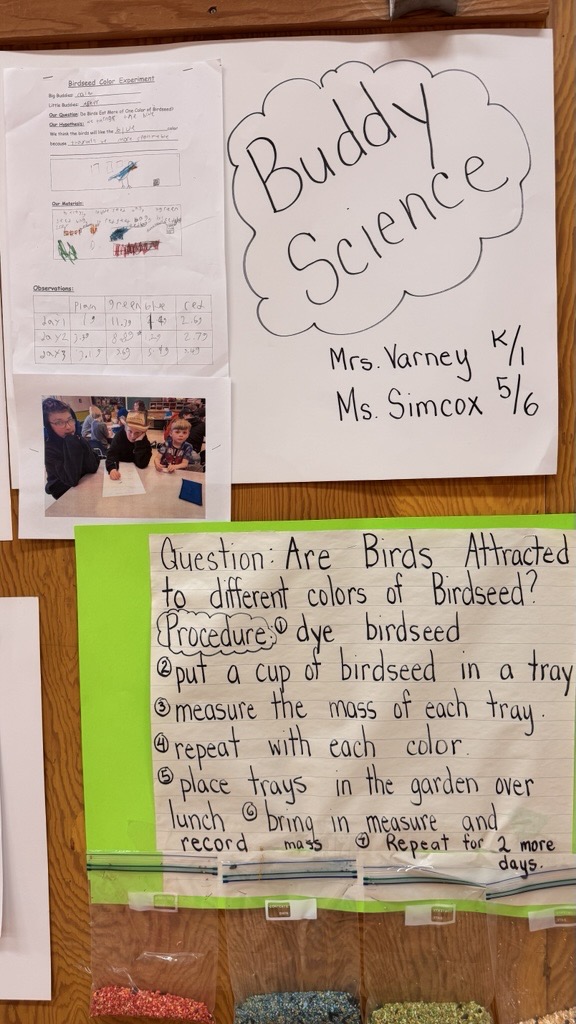 Birdseed Color Experiment
Big Buddies:
Little Buddies:
Our Question: Do Birds Eat More of One Color of Birdseed?
Our Hypothesis:
We think the birds will like the blue color
because
Our Materials:
Observations:
plain green blue red
day1
day2
day3
Buddy
Science
Mrs. Varney K/1
Ms. Simcox 5/6
Question: Are Birds Attracted
to different colors of Birdseed?
Procedure: ① dye birdseed
② put a cup of birdseed in a tray
③ measure the mass of each tray.
④ repeat with each color.
⑤ place trays in the garden over
lunch ⑥ bring in measure and
record mass ⑦ Repeat for 2 more
days.